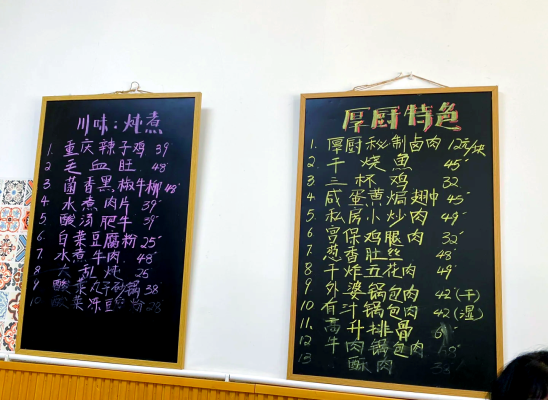 川味:炖煮
1. 重庆辣子鸡 39
2 毛血旺 48
3 菌香黑椒牛柳 48
4 水煮肉片 39
5 酸汤肥牛 39
6. 白菜豆腐粉 25
7. 水煮牛肉 48
8 乱炖 25
9 酸菜丸子砂锅 38
10 酸菜冻豆 28
厚厨特色
1. 厚厨秘制卤肉 12元/块
2 干烧鱼 45
3. 三杯鸡 32
4 咸蛋黄焗翅中 45
5 私房小炒肉 49
6 宫保鸡腿肉 32
7 葱香肚丝 48
8 干炸五花肉 49
9 外婆锅包肉 42(干)
10 有汁锅包肉 42(湿)
11、高升排骨
12 牛肉锅包肉
13 酥肉